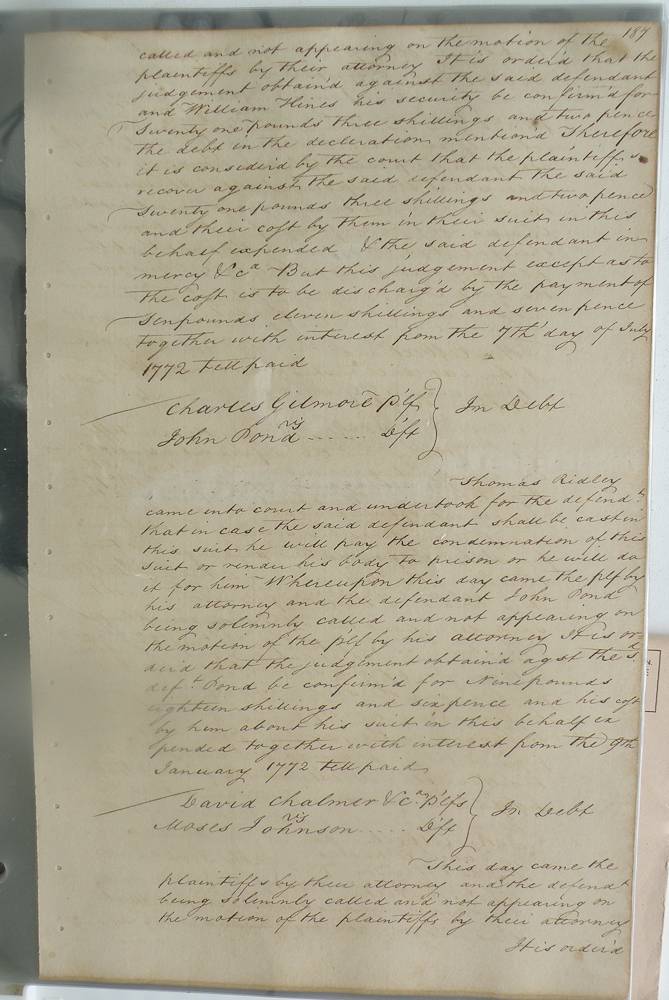 187
called and not appearing on the motion of the
plaintiffs by their attorney It is order'd that the
judgement obtain'd against the said defendant
and William Hines his security be confirm'd for
Twenty one pounds three shillings and two pence
the debt in the declaration mention'd Therefore
it is consider'd by the court that the plaintiffs
recover against the said defendant the said
Twenty one pounds three shillings and two pence
and their cost by them in their suit in this
behalf expended & the said defendant in
mercy &ca But this judgement except as to
the cost is to be discharg'd by the payment of
Ten pounds eleven shillings and seven pence
together with interest from the 7th day of July
1772 till paid
Charles Gilmore Plf
vs
In Debt
John Pond ...... Dft
Thomas Ridley
came into court and undertook for the defendt
that in case the said defendant shall be cast in
this suit he will pay the condemnation of this
suit or render his body to prison or he will do
it for him Whereupon this day came the plf by
his attorney and the defendant John Pond
being solemnly called and not appearing on
the motion of the plf by his attorney It is or
der'd that the judgement obtain'd agst the sd
deft Pond be confirm'd for Nine pounds
eighteen shillings and six pence and his cost
by him about his suit in this behalf ex
pended together with interest from the 9th
January 1772 till paid
David Chalmer &ca Plfs
vs
In Debt
Moses Johnson ..... Dft
This day came the
plaintiffs by their attorney and the defendt
being solemnly called and not appearing on
the motion of the plaintiffs by their attorney
It is order'd